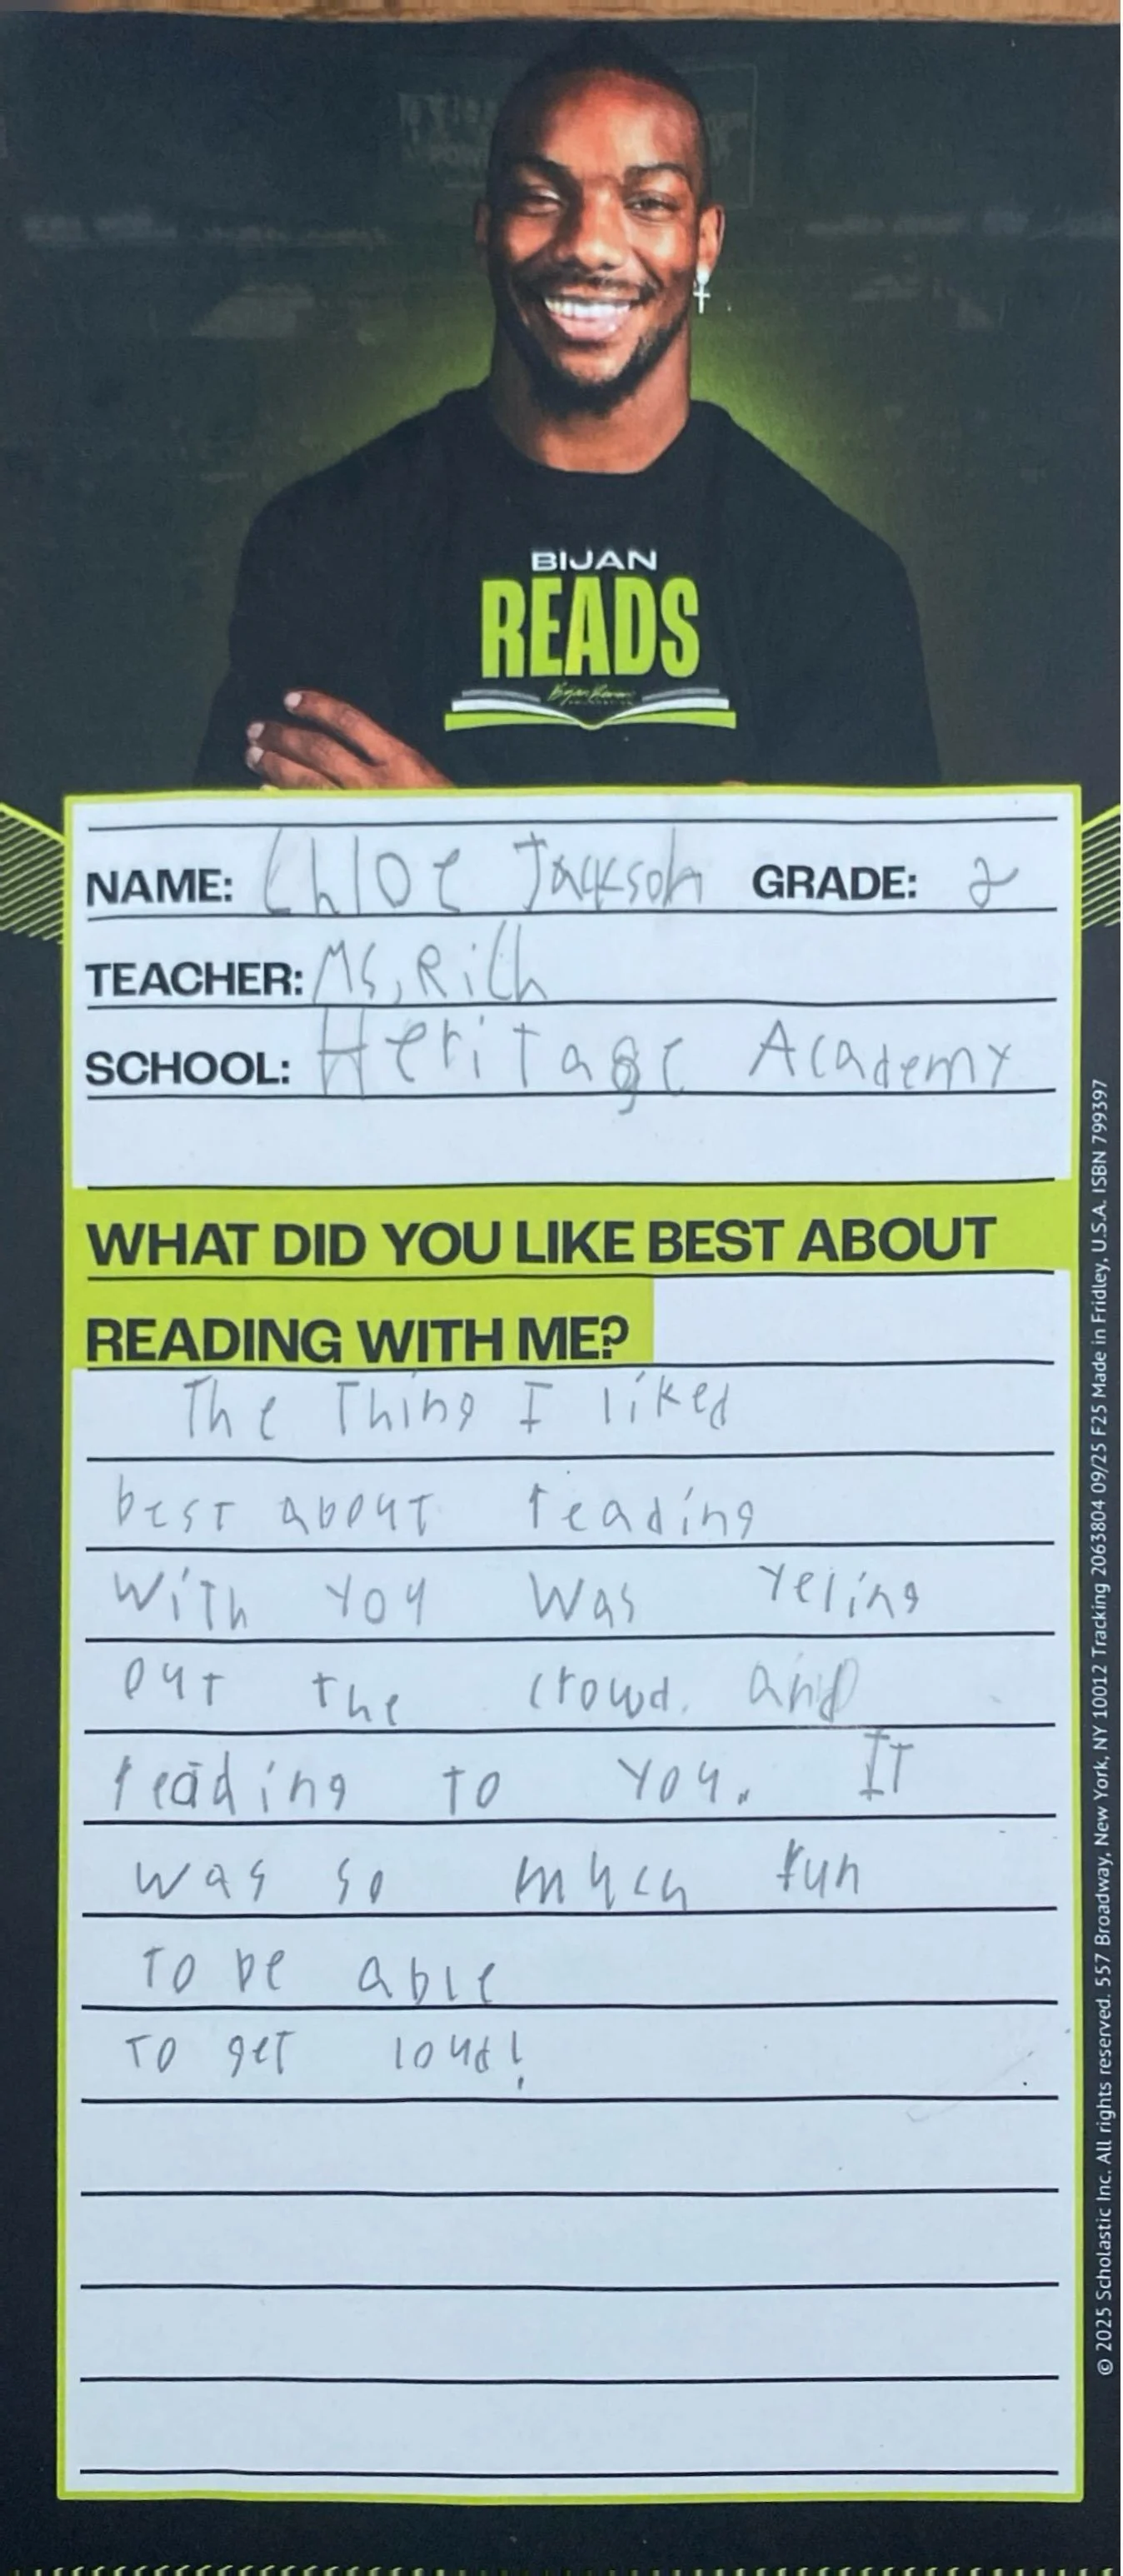 BIJAN
READS
NAME: Chloe Jackson GRADE: 2
TEACHER: Ms, Rich
SCHOOL: Heritage Academy
WHAT DID YOU LIKE BEST ABOUT
READING WITH ME?
The Thing I liked
best about reading
with you was yeling
out the crowd. and
reading to you. It
was so much fun
to be able
to get loud!
© 2025 Scholastic Inc. All rights reserved. 557 Broadway, New York, NY 10012 Tracking 2063804 09/25 F25 Made in Fridley, U.S.A. ISBN 799397